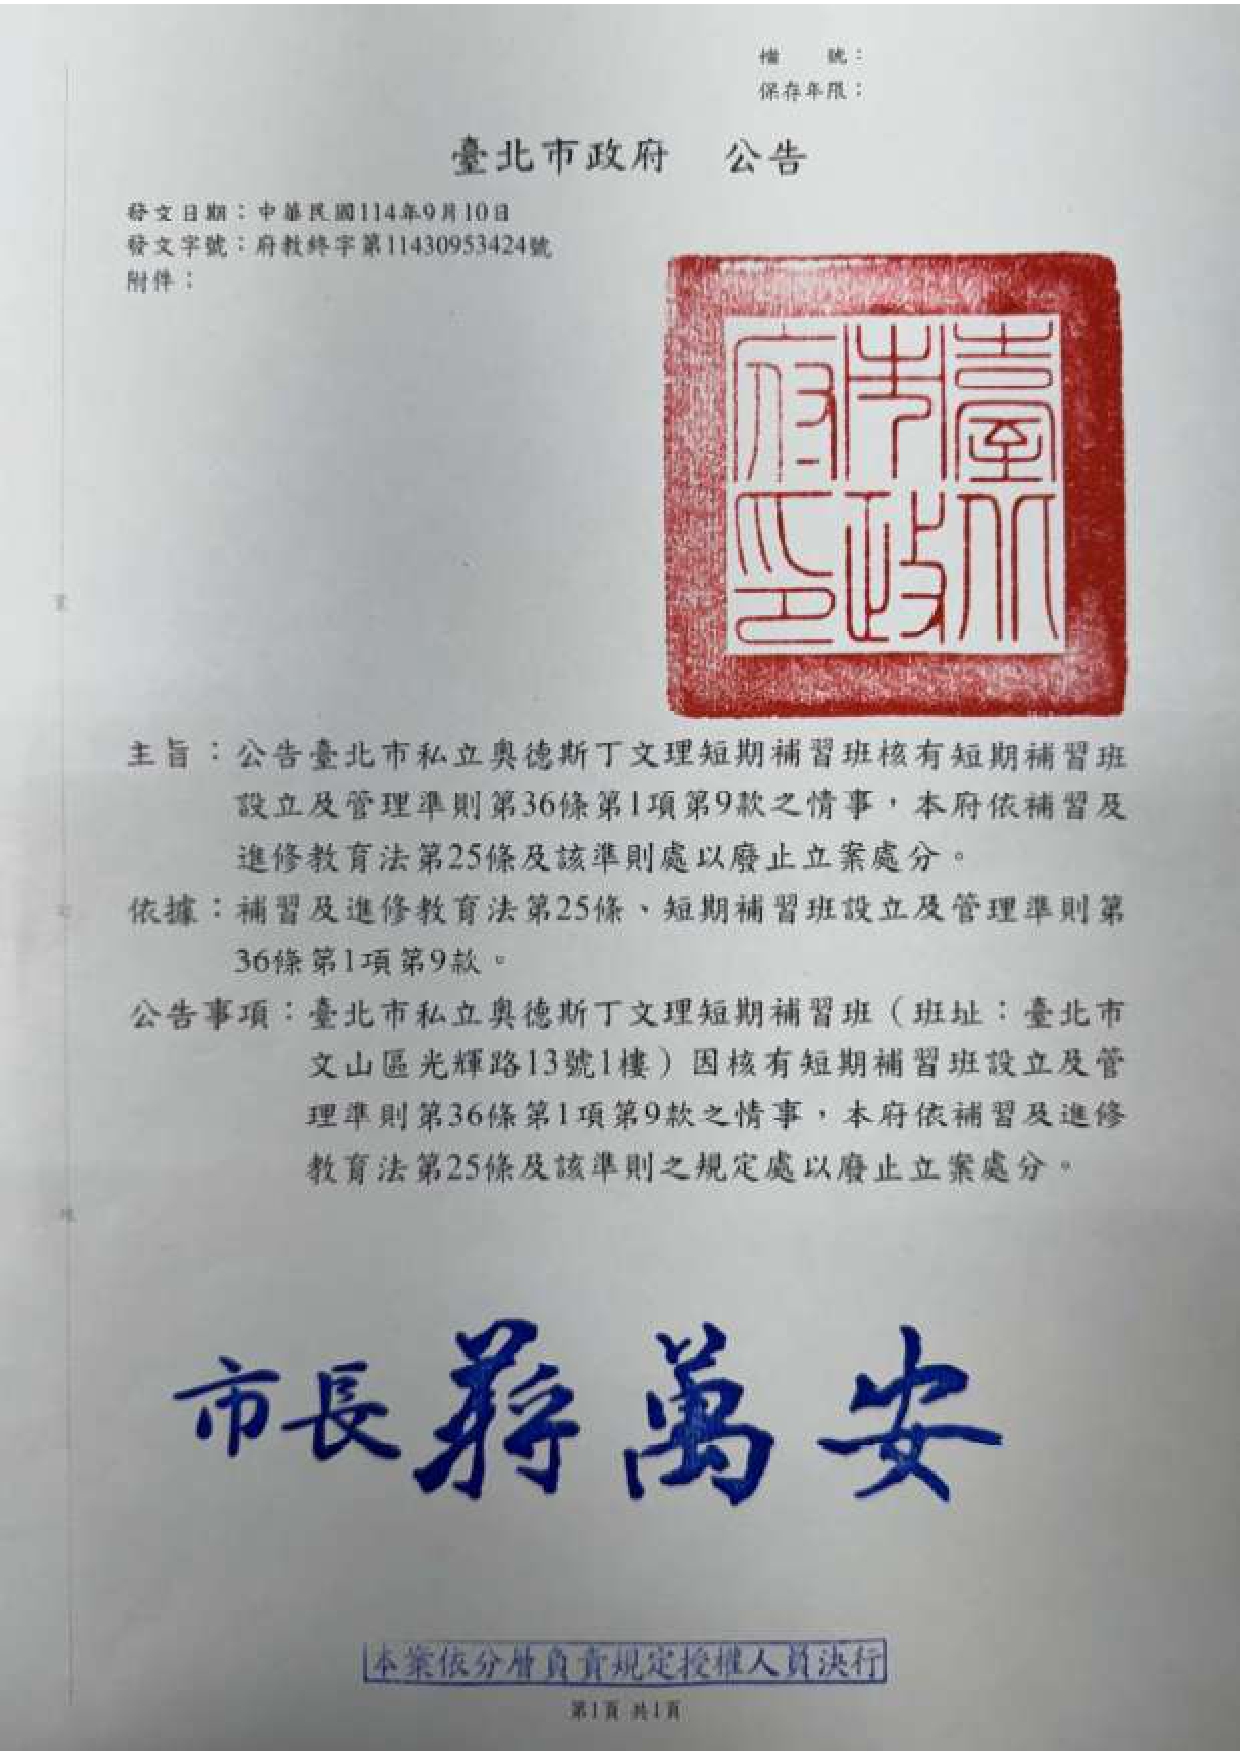 檔　　號：
保存年限：
臺北市政府　公告
發文日期：中華民國114年9月10日
發文字號：府教終字第11430953424號
附件：
臺北市政府印
主旨：公告臺北市私立奧德斯丁文理短期補習班核有短期補習班
設立及管理準則第36條第1項第9款之情事，本府依補習及
進修教育法第25條及該準則處以廢止立案處分。
依據：補習及進修教育法第25條、短期補習班設立及管理準則第
36條第1項第9款。
公告事項：臺北市私立奧德斯丁文理短期補習班（班址：臺北市
文山區光輝路13號1樓）因核有短期補習班設立及管
理準則第36條第1項第9款之情事，本府依補習及進修
教育法第25條及該準則之規定處以廢止立案處分。
市長蔣萬安
本案依分層負責規定授權人員決行
第1頁 共1頁